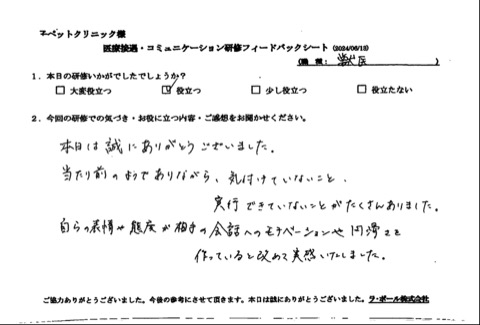 マペットクリニック様
医療接遇・コミュニケーション研修フィードバックシート (2024/06/13)
(職 種: 獣医 )
1．本日の研修いかがでしたでしょうか？
□ 大変役立つ ☑ 役立つ □ 少し役立つ □ 役立たない
2．今回の研修での気づき・お役に立つ内容・ご感想をお聞かせください。
本日は誠にありがとうございました。
当たり前のようでありながら、気付けていないこと、
実行できていないことがたくさんありました。
自らの表情や態度が相手の会話へのモチベーションや円滑さを
作っていると改めて実感いたしました。
ご協力ありがとうございました。今後の参考にさせて頂きます。本日は誠にありがとうございました。ラ・ポール株式会社